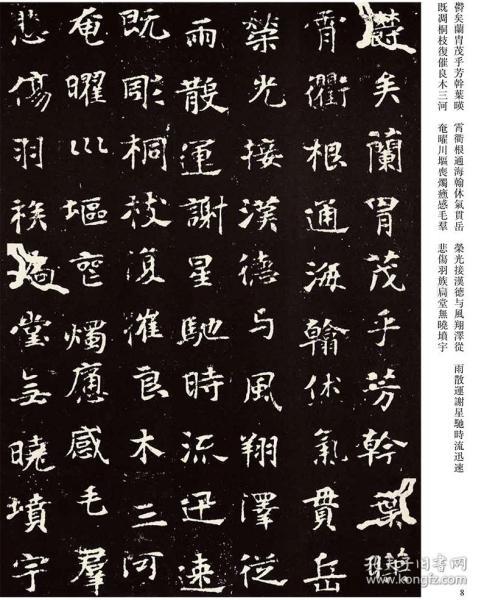 欝矣蘭胄茂乎芳幹葉暎 霄衢根通海翰休氣貫岳 榮光接漢德与風翔澤從 雨散運謝星馳時流迅速
既凋桐枝復催良木三河 奄曜川塸喪燭感毛羣 悲傷羽族扃堂無曉墳宇
欝矣蘭胄茂乎芳幹葉暎
霄衢根通海翰休氣貫岳
榮光接漢德与風翔澤從
雨散運謝星馳時流迅速
既彫桐枝復摧良木三河
奄曜巛塸喪燭感毛羣
悲傷羽族扃堂无曉墳宇
8
孔夫子旧书网
kongfz.com